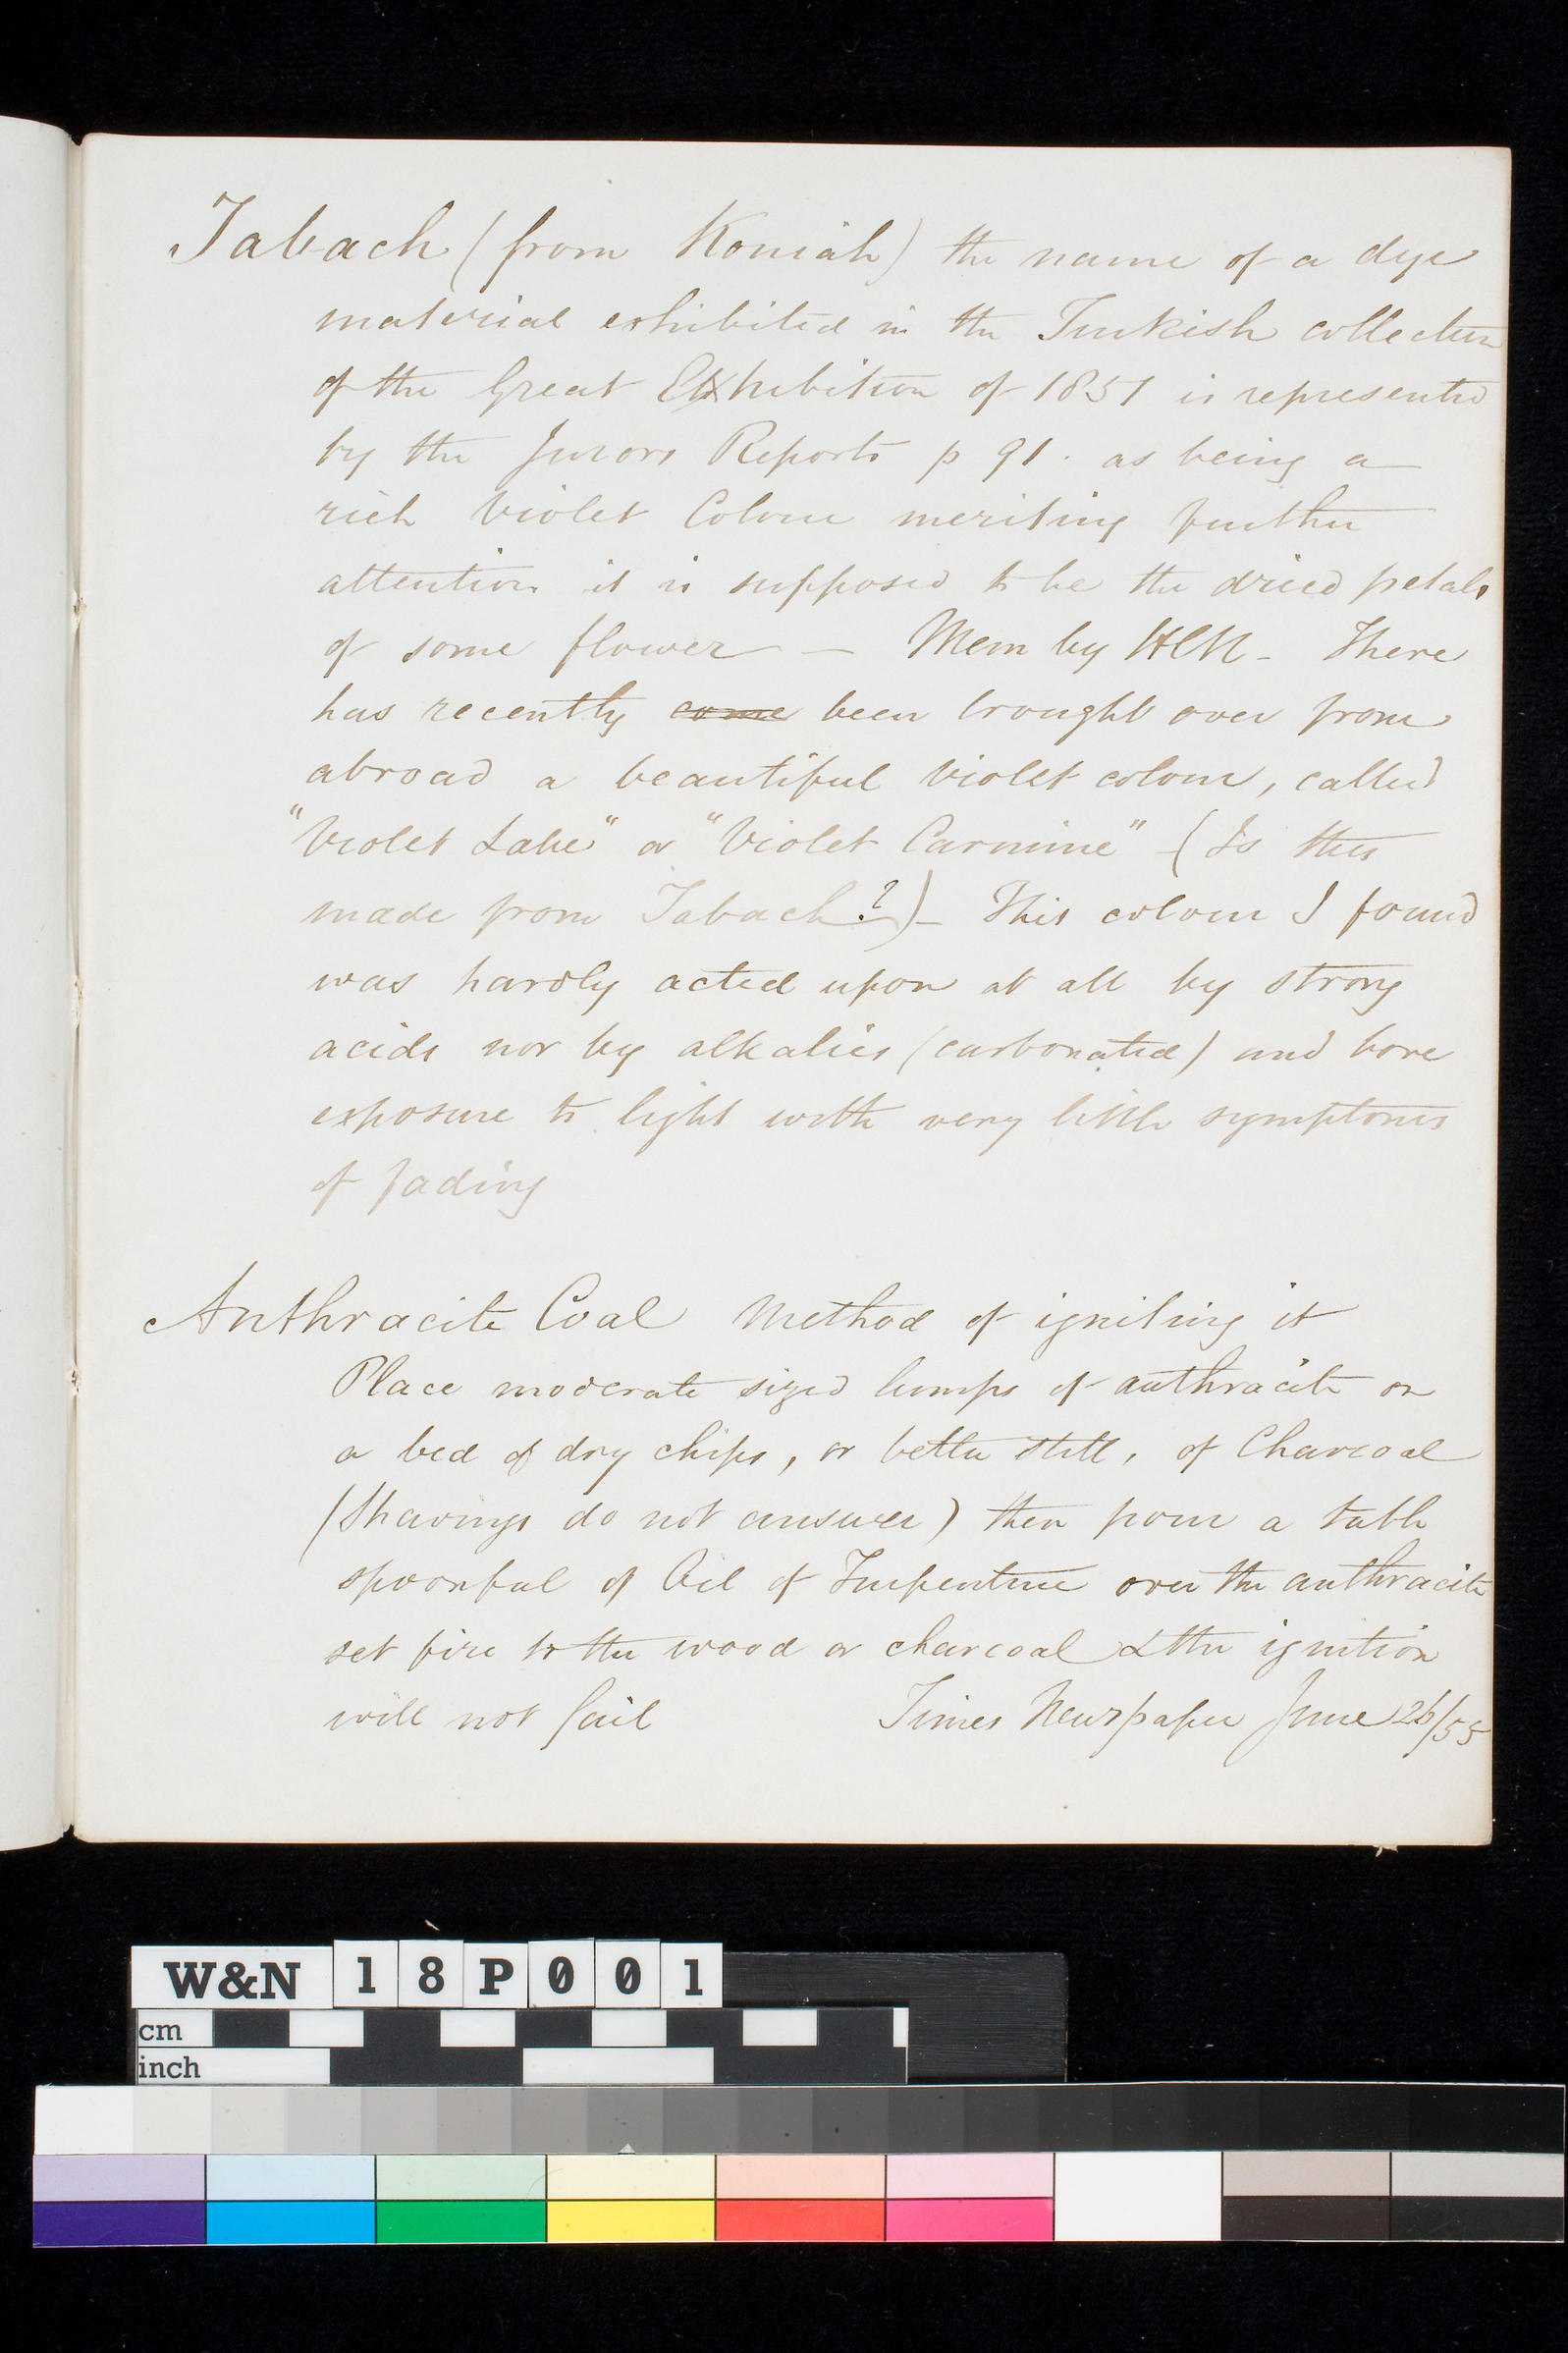 Tabach (from Koniah) the name of a dye
material exhibited in the Turkish collection
of the Great Exhibition of 1851 is represented
by the Jurors Reports p 91. as being a
rich Violet Colour meriting further
attention it is supposed to be the dried petals
of some flower — Mem by HCN - There
has recently come been brought over from
abroad a beautiful violet colour, called
"Violet Lake" or "Violet Carmine" - (Is this
made from Tabach?) - This colour I found
was hardly acted upon at all by strong
acids nor by alkalies (carbonated) and bore
exposure to light with very little symptoms
of fading
Anthracite Coal Method of igniting it
Place moderate sized lumps of anthracite on
a bed of dry chips, or better still, of Charcoal
(Shavings do not answer) then pour a table
spoonful of Oil of Turpentine over the anthracite
set fire to the wood or charcoal & the ignition
will not fail Times Newspaper June 26/55
W&N 18P001
cm
inch